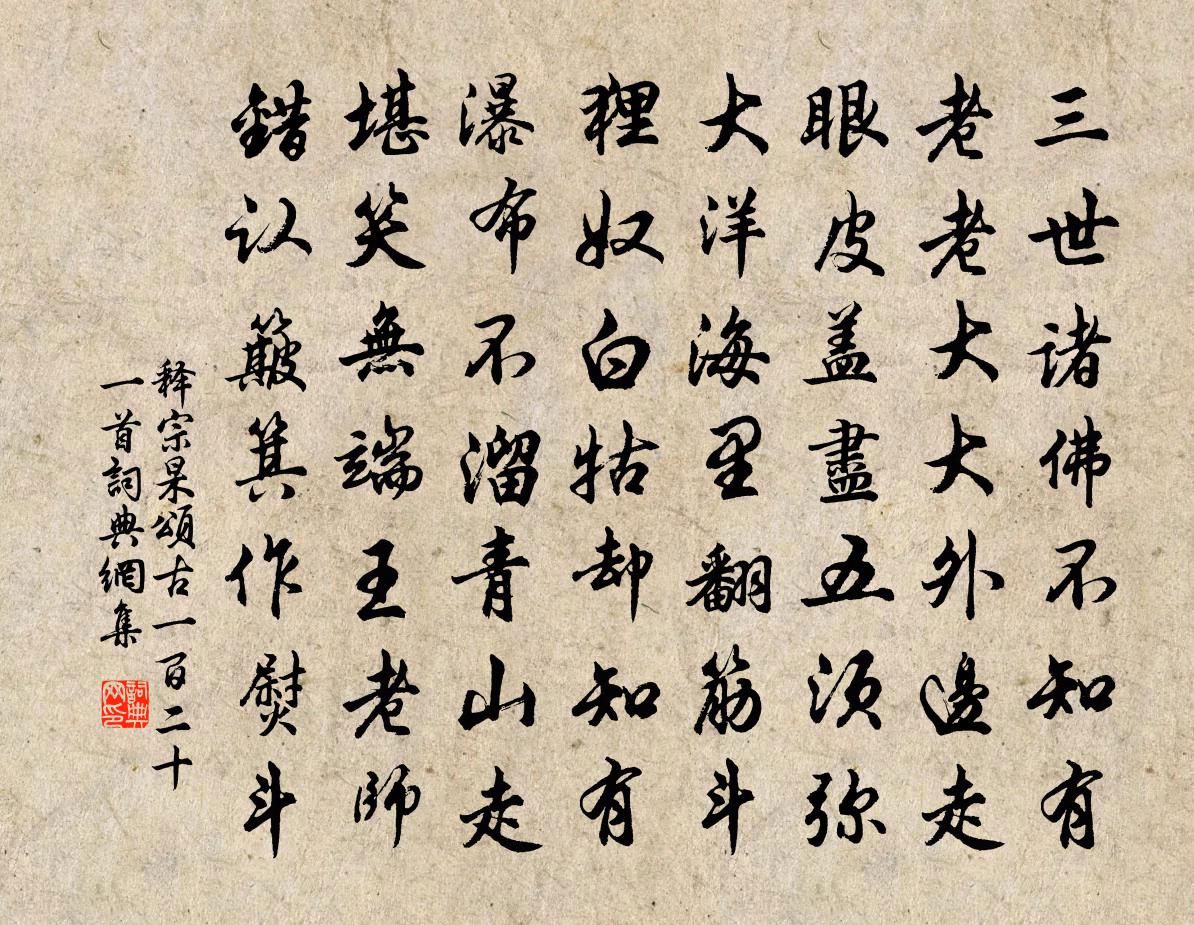 三世诸佛不知有
老老大大外邊走
眼皮盖盡五須弥
大洋海里翻筋斗
狸奴白牯却知有
瀑布不溜青山走
堪笑無端王老師
錯认簸箕作熨斗
释宗杲頌古一百二十
一首詞典網集
詞典网印